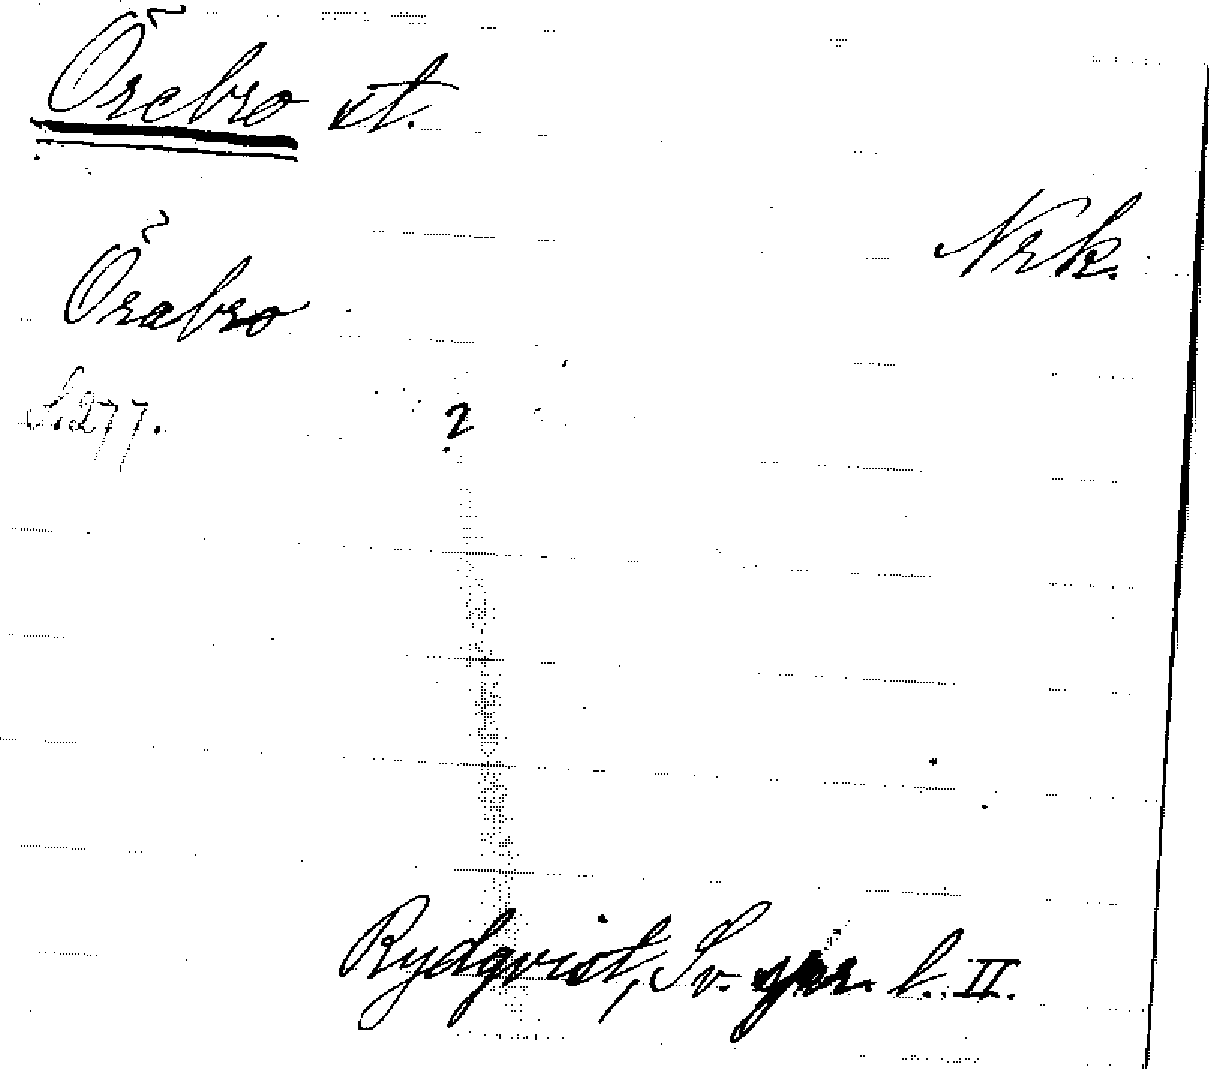 Örebro st.
Nrk.
Örabro
S. 277.
?
Rydqvist, Sv. spr. l. II.